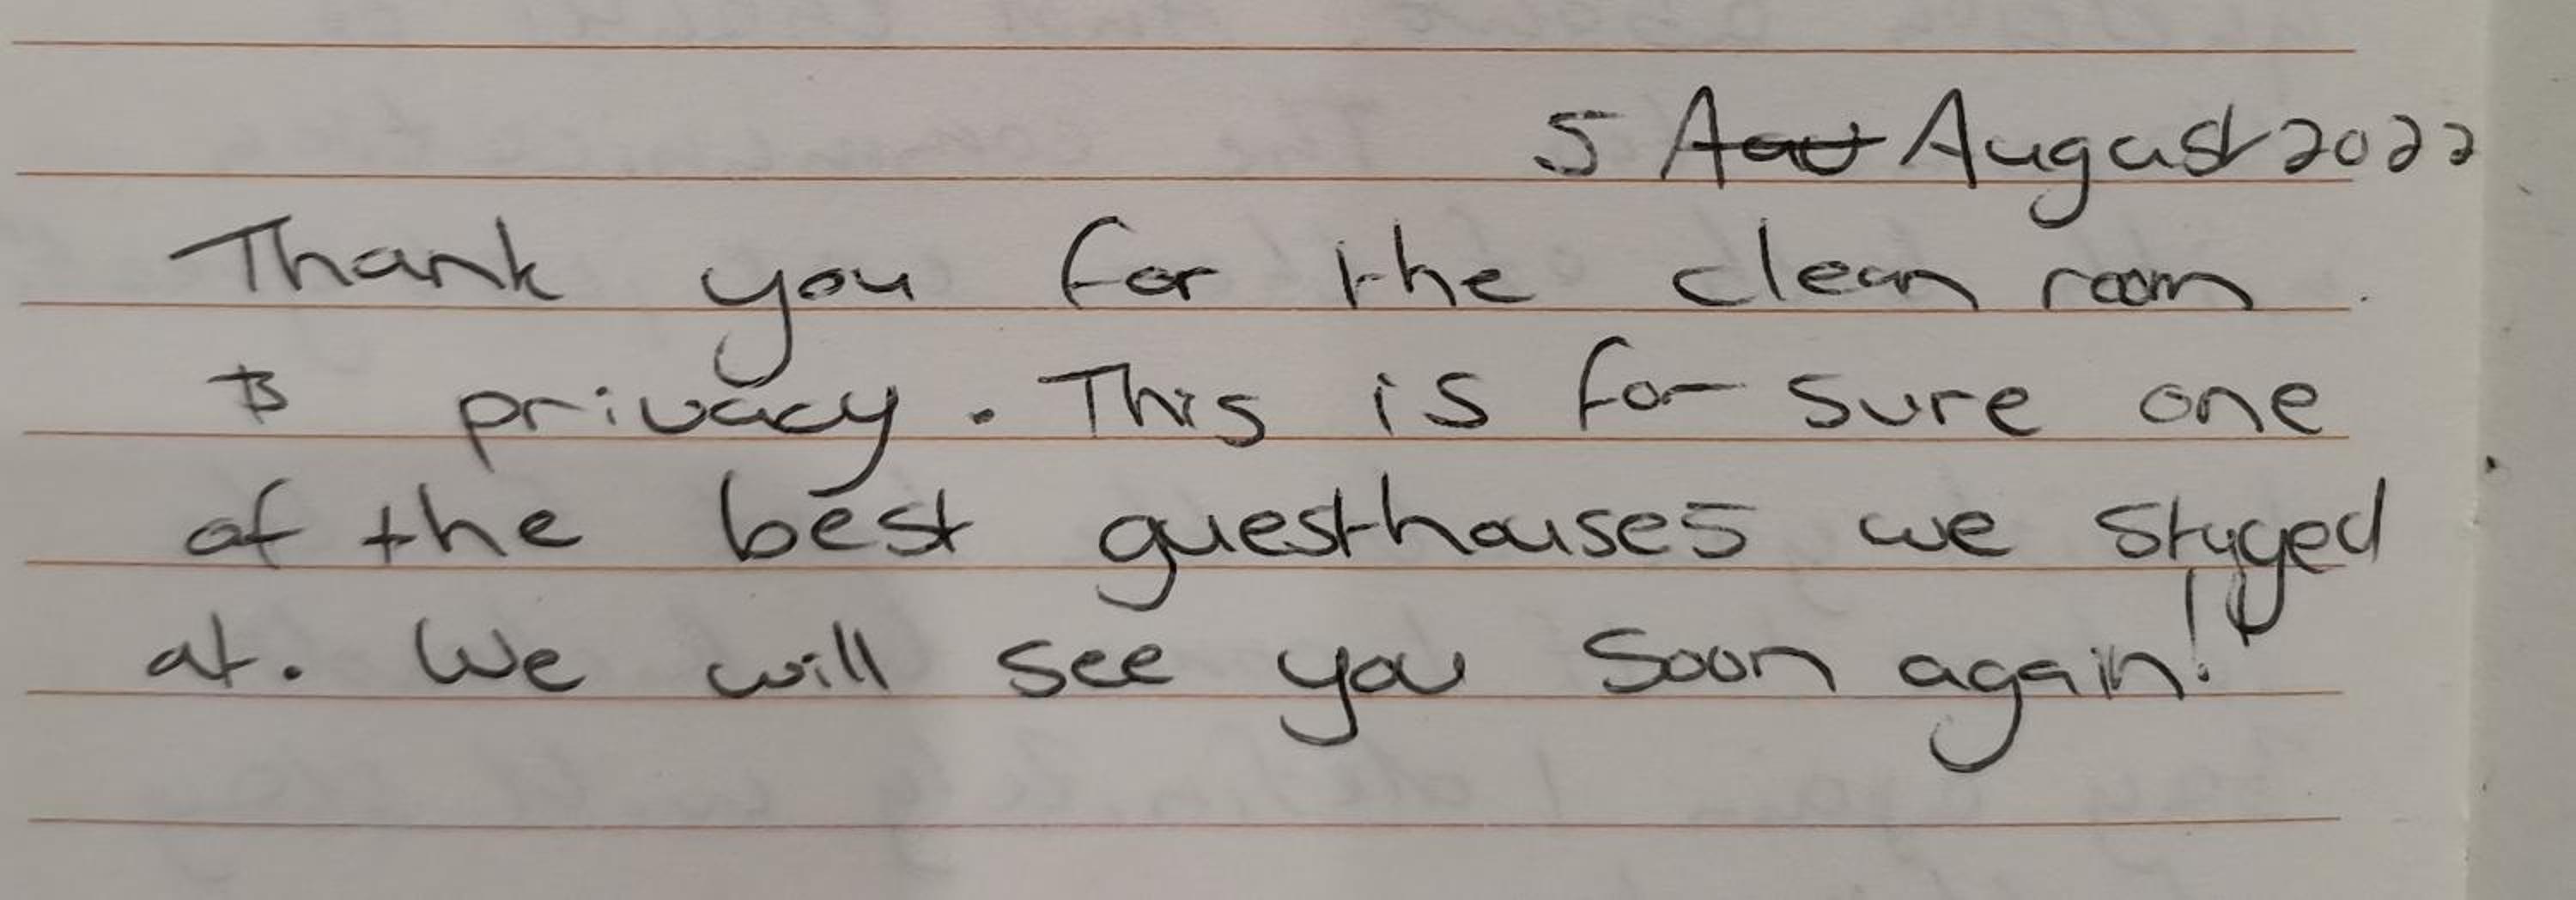 5 August 2022
Thank you for the clean room
& privacy. This is for sure one
of the best guesthouses we stayed
at. We will see you soon again!